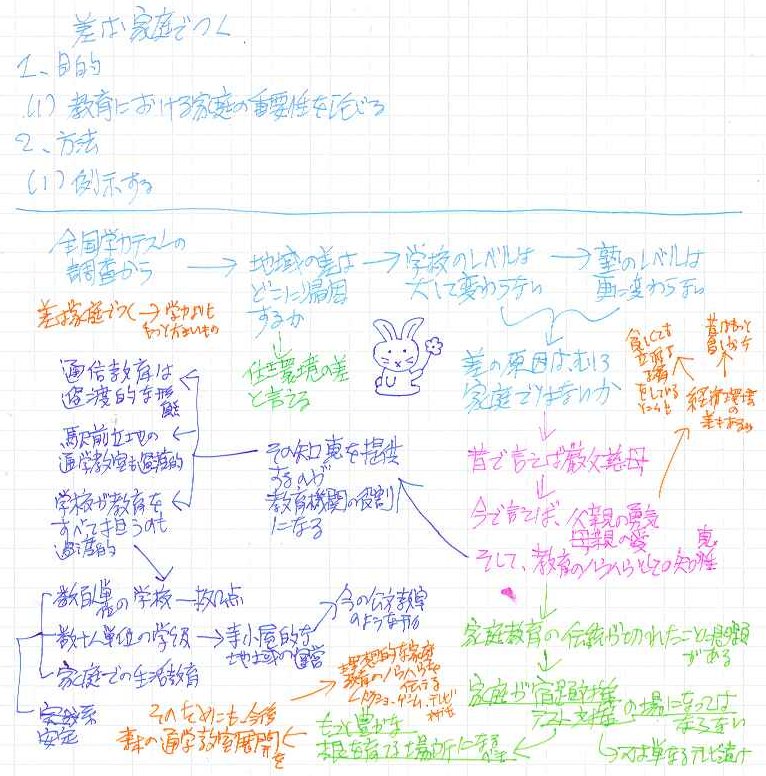 差は家庭でつく
1、目的
(1) 教育における家庭の重要性を論じる
2、方法
(1) 例示する
全国学力テストの
調査から
→ 地域の差は
どこに帰因
するか
→ 学校のレベルは
大して変わらない
→ 塾のレベルは
更に変わらない
差は家庭でつく → 学力よりも
もっと大きいもの
住環境の差
と言える
差の原因は、むしろ
家庭ではないか
貧しくても
立派な
経済環境
の
差もあるが
昔はもっと
昔で言えば厳父慈母
今で言えば、父親の勇気
母親の愛
そして、教育のノウハウとしての知性
その知恵を提供
するのが
教育機関の役割
になる
通信教育は
過渡的な形態
駅前立地の
通学教室も過渡的
学校が教育を
すべて担うのも
過渡的
数百人単位の学校 — 拠点
数十人単位の学級 → 寺小屋的な
地域の運営
今の公文教室
のような形
家庭での生活教育
安定
家庭教育の伝統が切れたことに問題
がある
家庭が宿題的推
テスト支援の場になっては
ならない
又は単なるテレビ漬け
もっと豊かな
根を育てる場所になるべき
理想的な家庭
教育のノウハウを
伝える
そのためにも今後
森の通学教室展開を